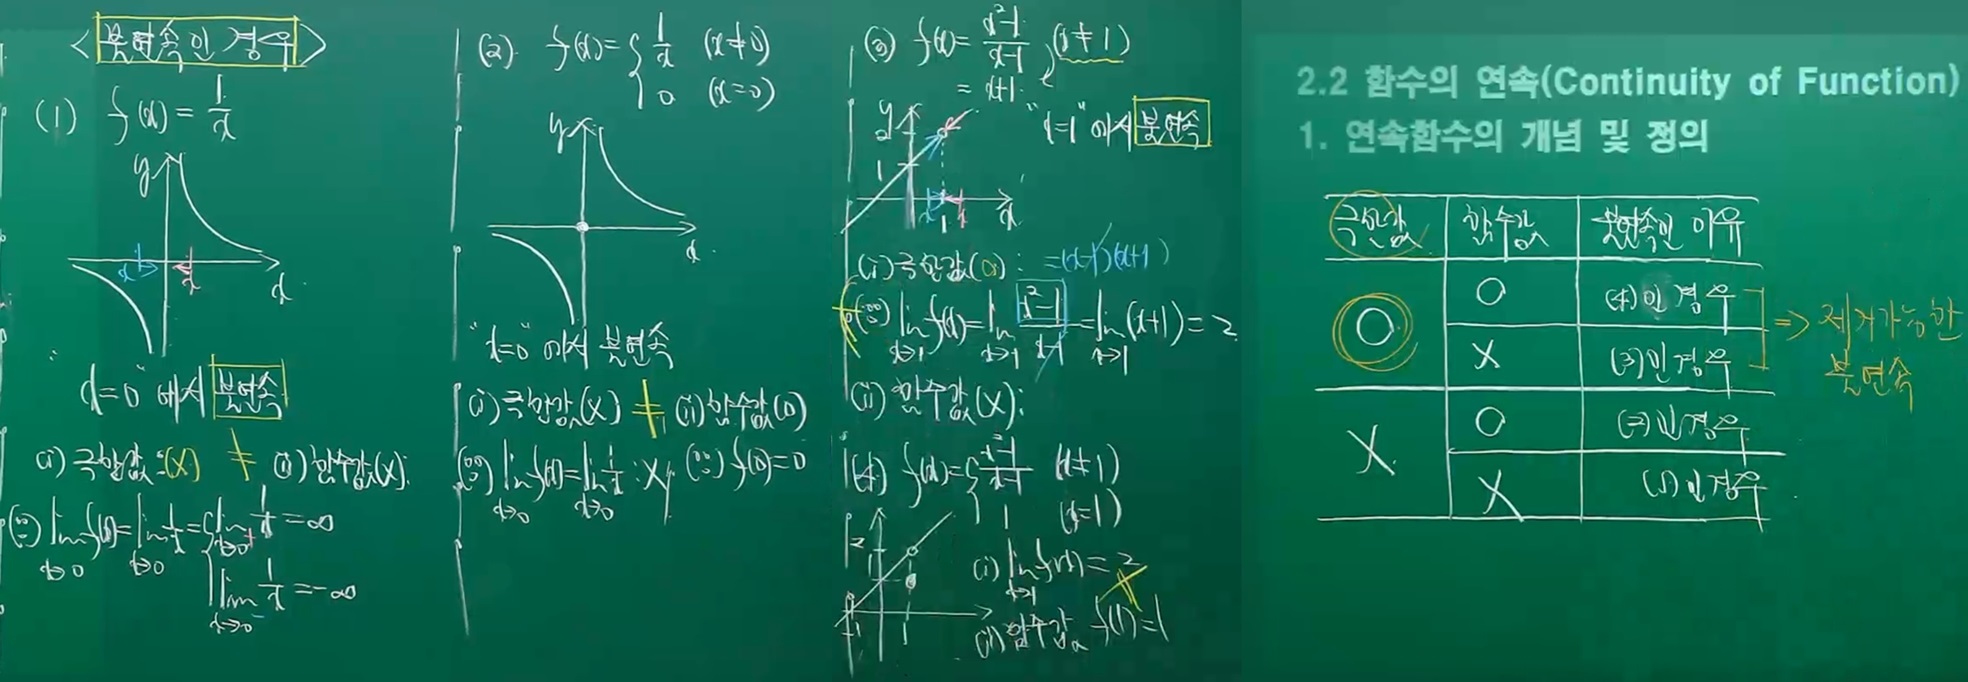 <불연속인 경우>
(1) f(x) = 1/x
y
x
x
x
"x=0"에서 불연속
(i) 극한값:(X) ≠ (ii) 함수값(X):
(∵) lim x→0 f(x) = lim x→0 1/x = { lim x→0+ 1/x = ∞
lim x→0- 1/x = -∞
(2) f(x) = { 1/x (x≠0)
0 (x=0)
y
x
"x=0"에서 불연속
(i) 극한값(X) ≠ (ii) 함수값(O)
(∵) lim x→0 f(x) = lim x→0 1/x : X, (∵) f(0)=0
(3) f(x) = x²-1/x-1, (x≠1)
= x+1.
"x=1"에서 불연속
y
2
1
x
x
1
x
(i) 극한값(O): =(x-1)(x+1)
(∵) lim x→1 f(x) = lim x→1 x²-1/x-1 = lim x→1 (x+1) = 2
(ii) 함수값(X):
(4) f(x) = { x²-1/x-1 (x≠1)
1 (x=1)
2
1
-1
1
(i) lim x→1 f(x) = 2
≠
(ii) 함수값 f(1)=1
2.2 함수의 연속(Continuity of Function)
1. 연속함수의 개념 및 정의
극한값 함수값 불연속인 이유
O O (4)인 경우
X (3)인 경우
=> 제거가능한
불연속
X O (2)인 경우
X (1)인 경우